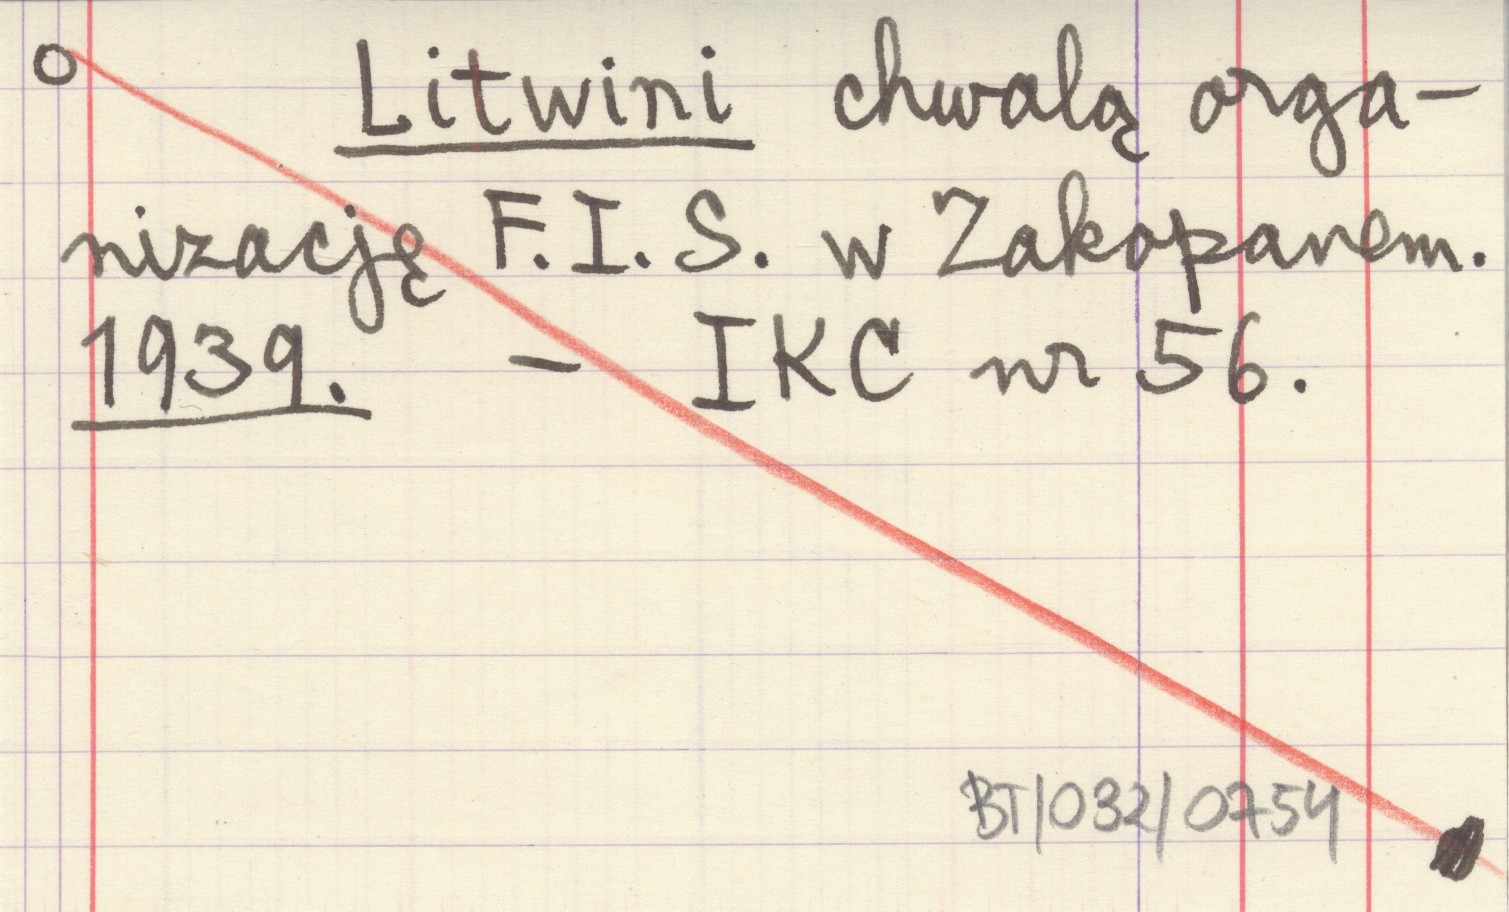 Litwini chwalą orga-
nizację F.I.S. w Zakopanem.
1939. - IKC nr 56.
BT/032/0754